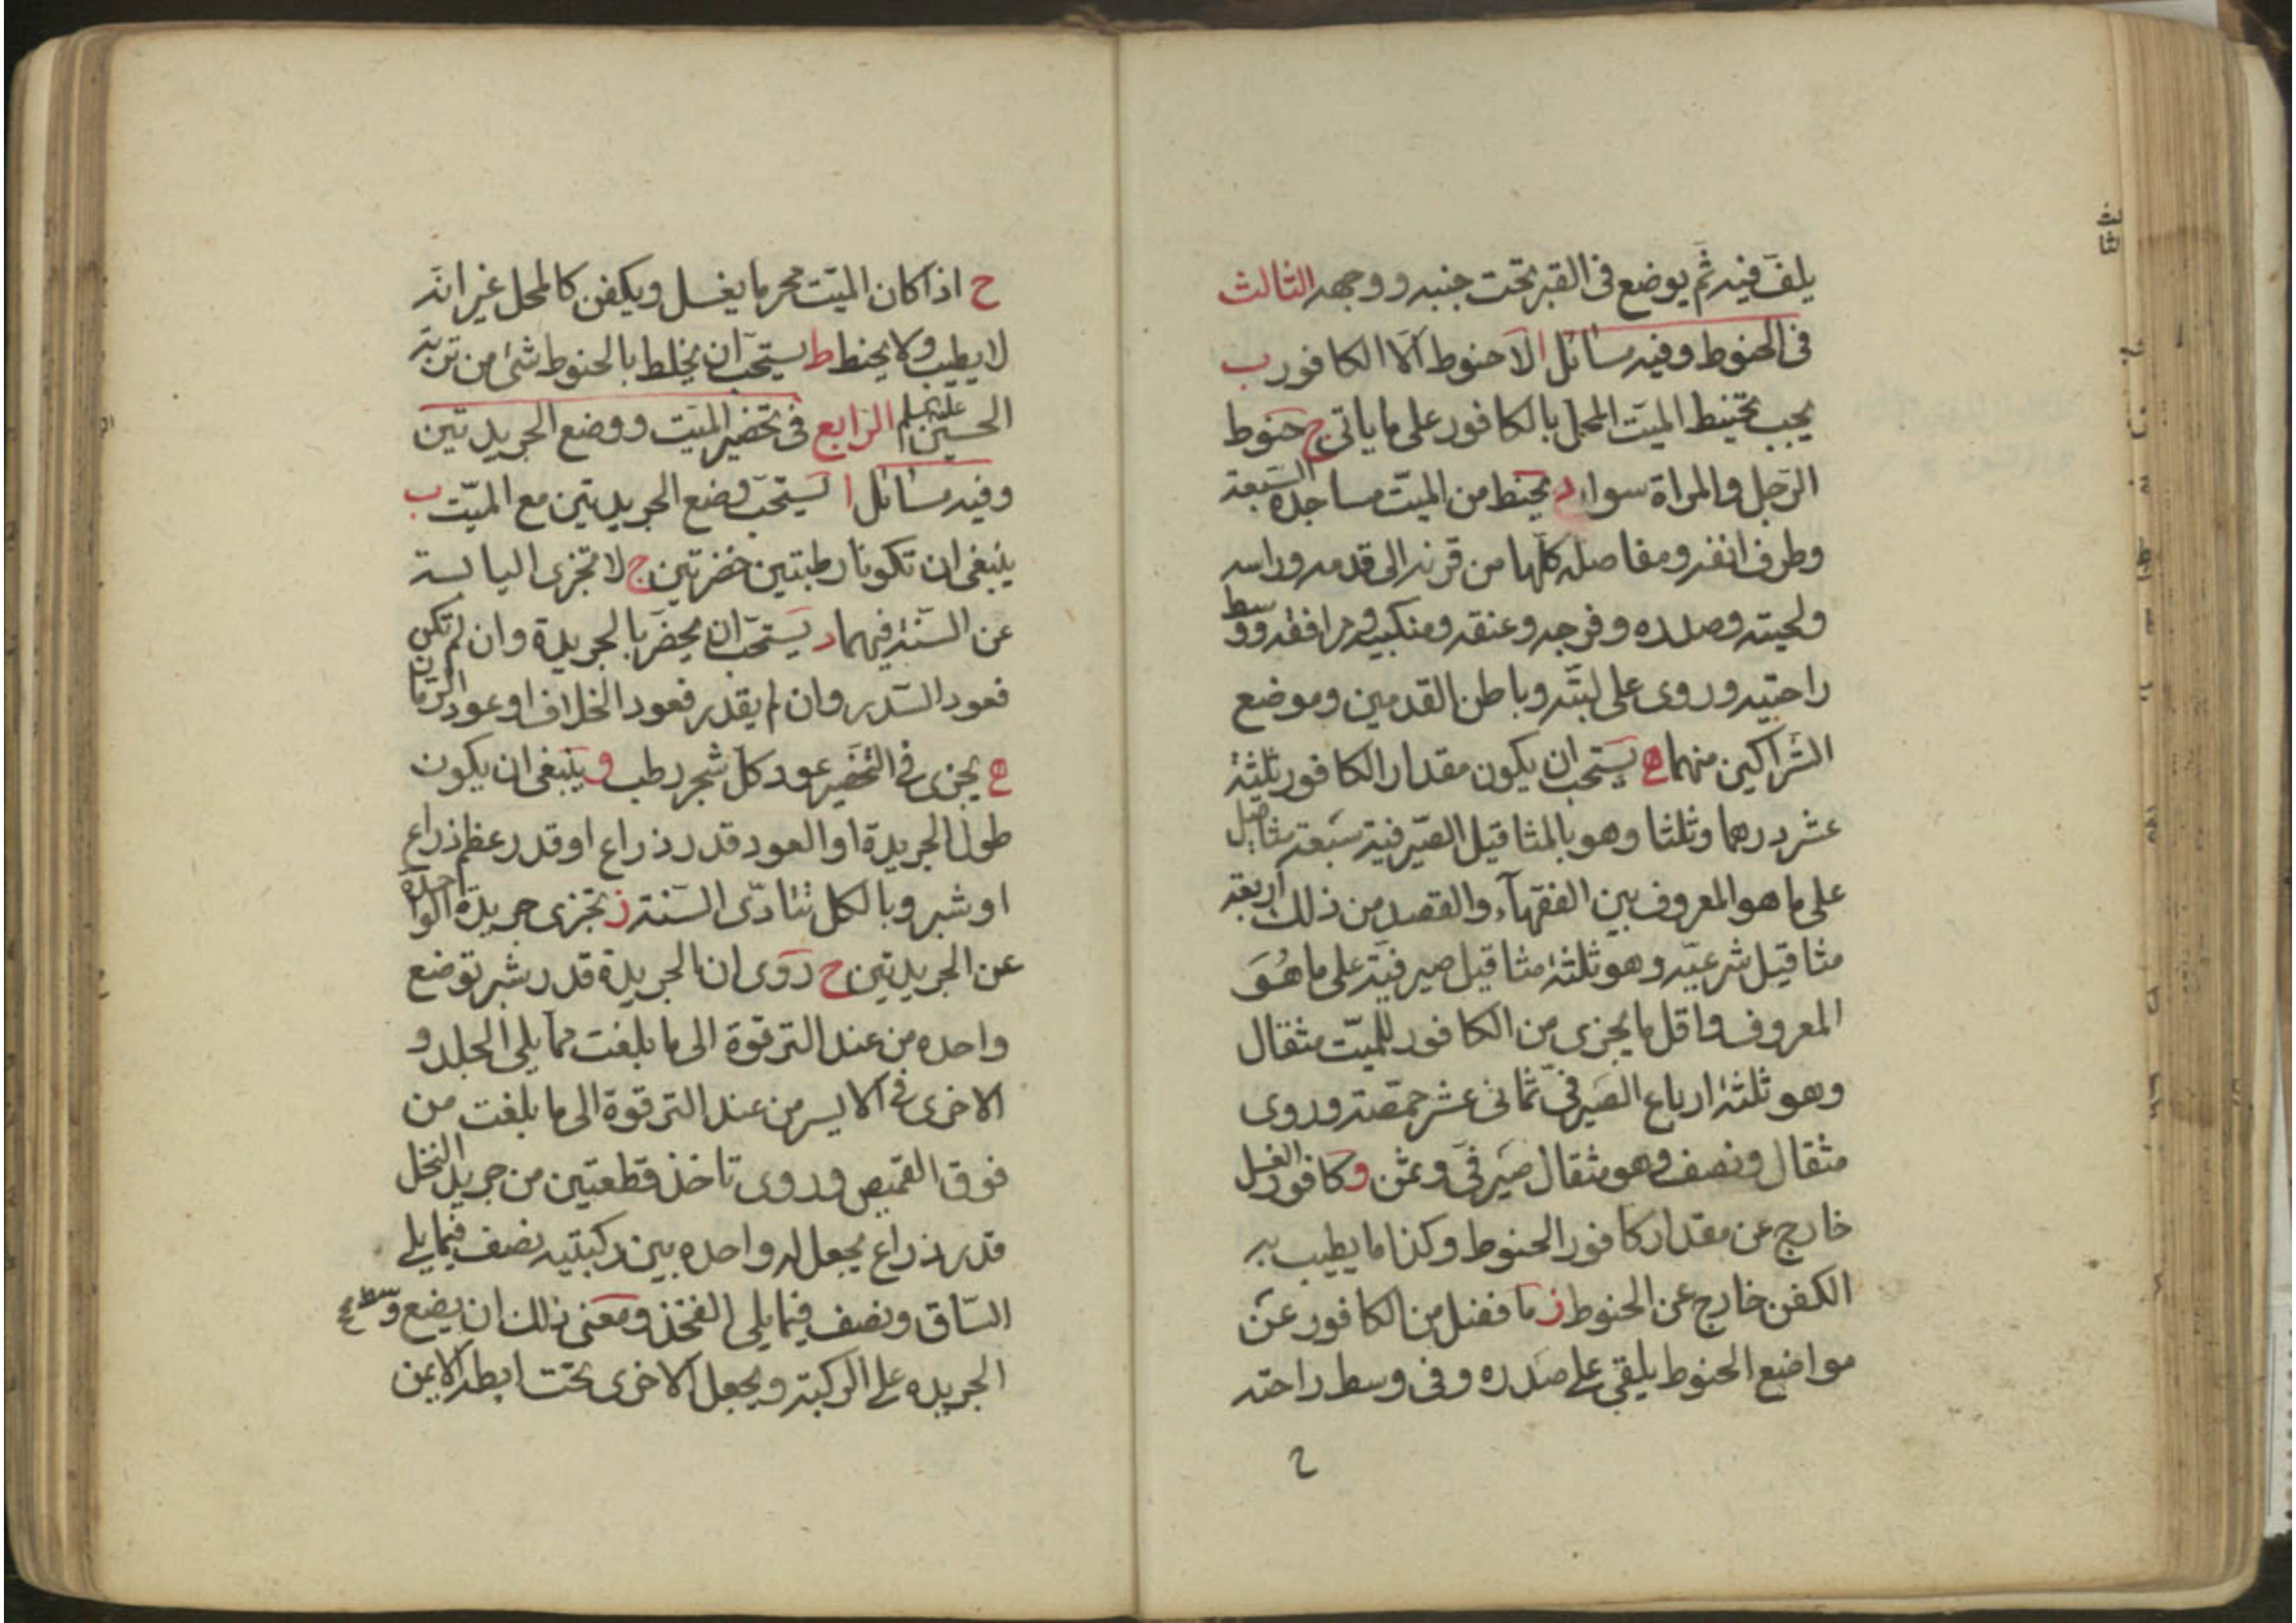 يلف فيه ثم يوضع في القبر تحت جنبه ووجهه الثالث
في الحنوط وفيه مسائل ا لا حنوط الا الكافور ب
يجب تحنيط الميت المحل بالكافور على ما ياتي ج حنوط
الرجل والمراة سواء د يحنط من الميت مساجده السبعة
وطرف انفه ومفاصله كلها من قرنه الى قدمه وراسه
ولحيته وصدره وفرجه وعنقه ومنكبيه ومرافقه ووسط
راحتيه وروى على لبته وباطن القدمين وموضع
الشراكين منهما ه يستحب ان يكون مقدار الكافور ثلثة
عشر درهما وثلثا وهو بالمثاقيل الصيرفية سبعة مثاقيل
على ما هو المعروف بين الفقهآء والقصد من ذلك اربعة
مثاقيل شرعيه وهو ثلثة مثاقيل صيرفية على ما هو
المعروف واقل ما يجزى من الكافور للميت مثقال
وهو ثلثة ارباع الصيرفي ثماني عشر حمصة وروى
مثقال ونصف وهو مثقال صيرفي وثمن و كافور الغسل
خارج عن مقدار كافور الحنوط وكذا ما يطيب به
الكفن خارج عن الحنوط ز ما فضل من الكافور عن
مواضع الحنوط يلقى على صدره وفي وسط راحته
ح اذا كان الميت محرما يغسل ويكفن كالمحل غير انه
لا يطيب ولا يحنط ط يستحب ان يخلط بالحنوط شئ من تربة
الحسين عليه السلم الرابع في تخضير الميت ووضع الجريدتين
وفيه مسائل ا يستحب وضع الجريدتين مع الميت ب
ينبغي ان تكونا رطبتين خضرتين ج لا تجزى اليابسة
عن السنة فيهما د يستحب ان يخضر بالجريدة وان لم تكن
فعود السدر وان لم يقدر فعود الخلاف او عود الرمان
ه يجزى في التخضير عود كل شجر رطب و ينبغي ان يكون
طول الجريدة او العود قدر ذراع او قدر عظم ذراع
او شبر وبالكل تتادى السنة ز تجزى جريدة الواحدة
عن الجريدتين ح روى ان الجريدة قدر شبر توضع
واحده من عند الترقوة الى ما بلغت مما يلي الجلد و
الاخرى في الايسر من عند الترقوة الى ما بلغت من
فوق القميص وروى تاخذ قطعتين من جريد النخل
قدر ذراع يجعل له واحده بين ركبتيه نصف فيما يلي
الساق ونصف فيما يلي الفخذ ومعنى ذلك ان يضع وسط
الجريده على الركبة ويجعل الاخرى تحت ابطه الايمن